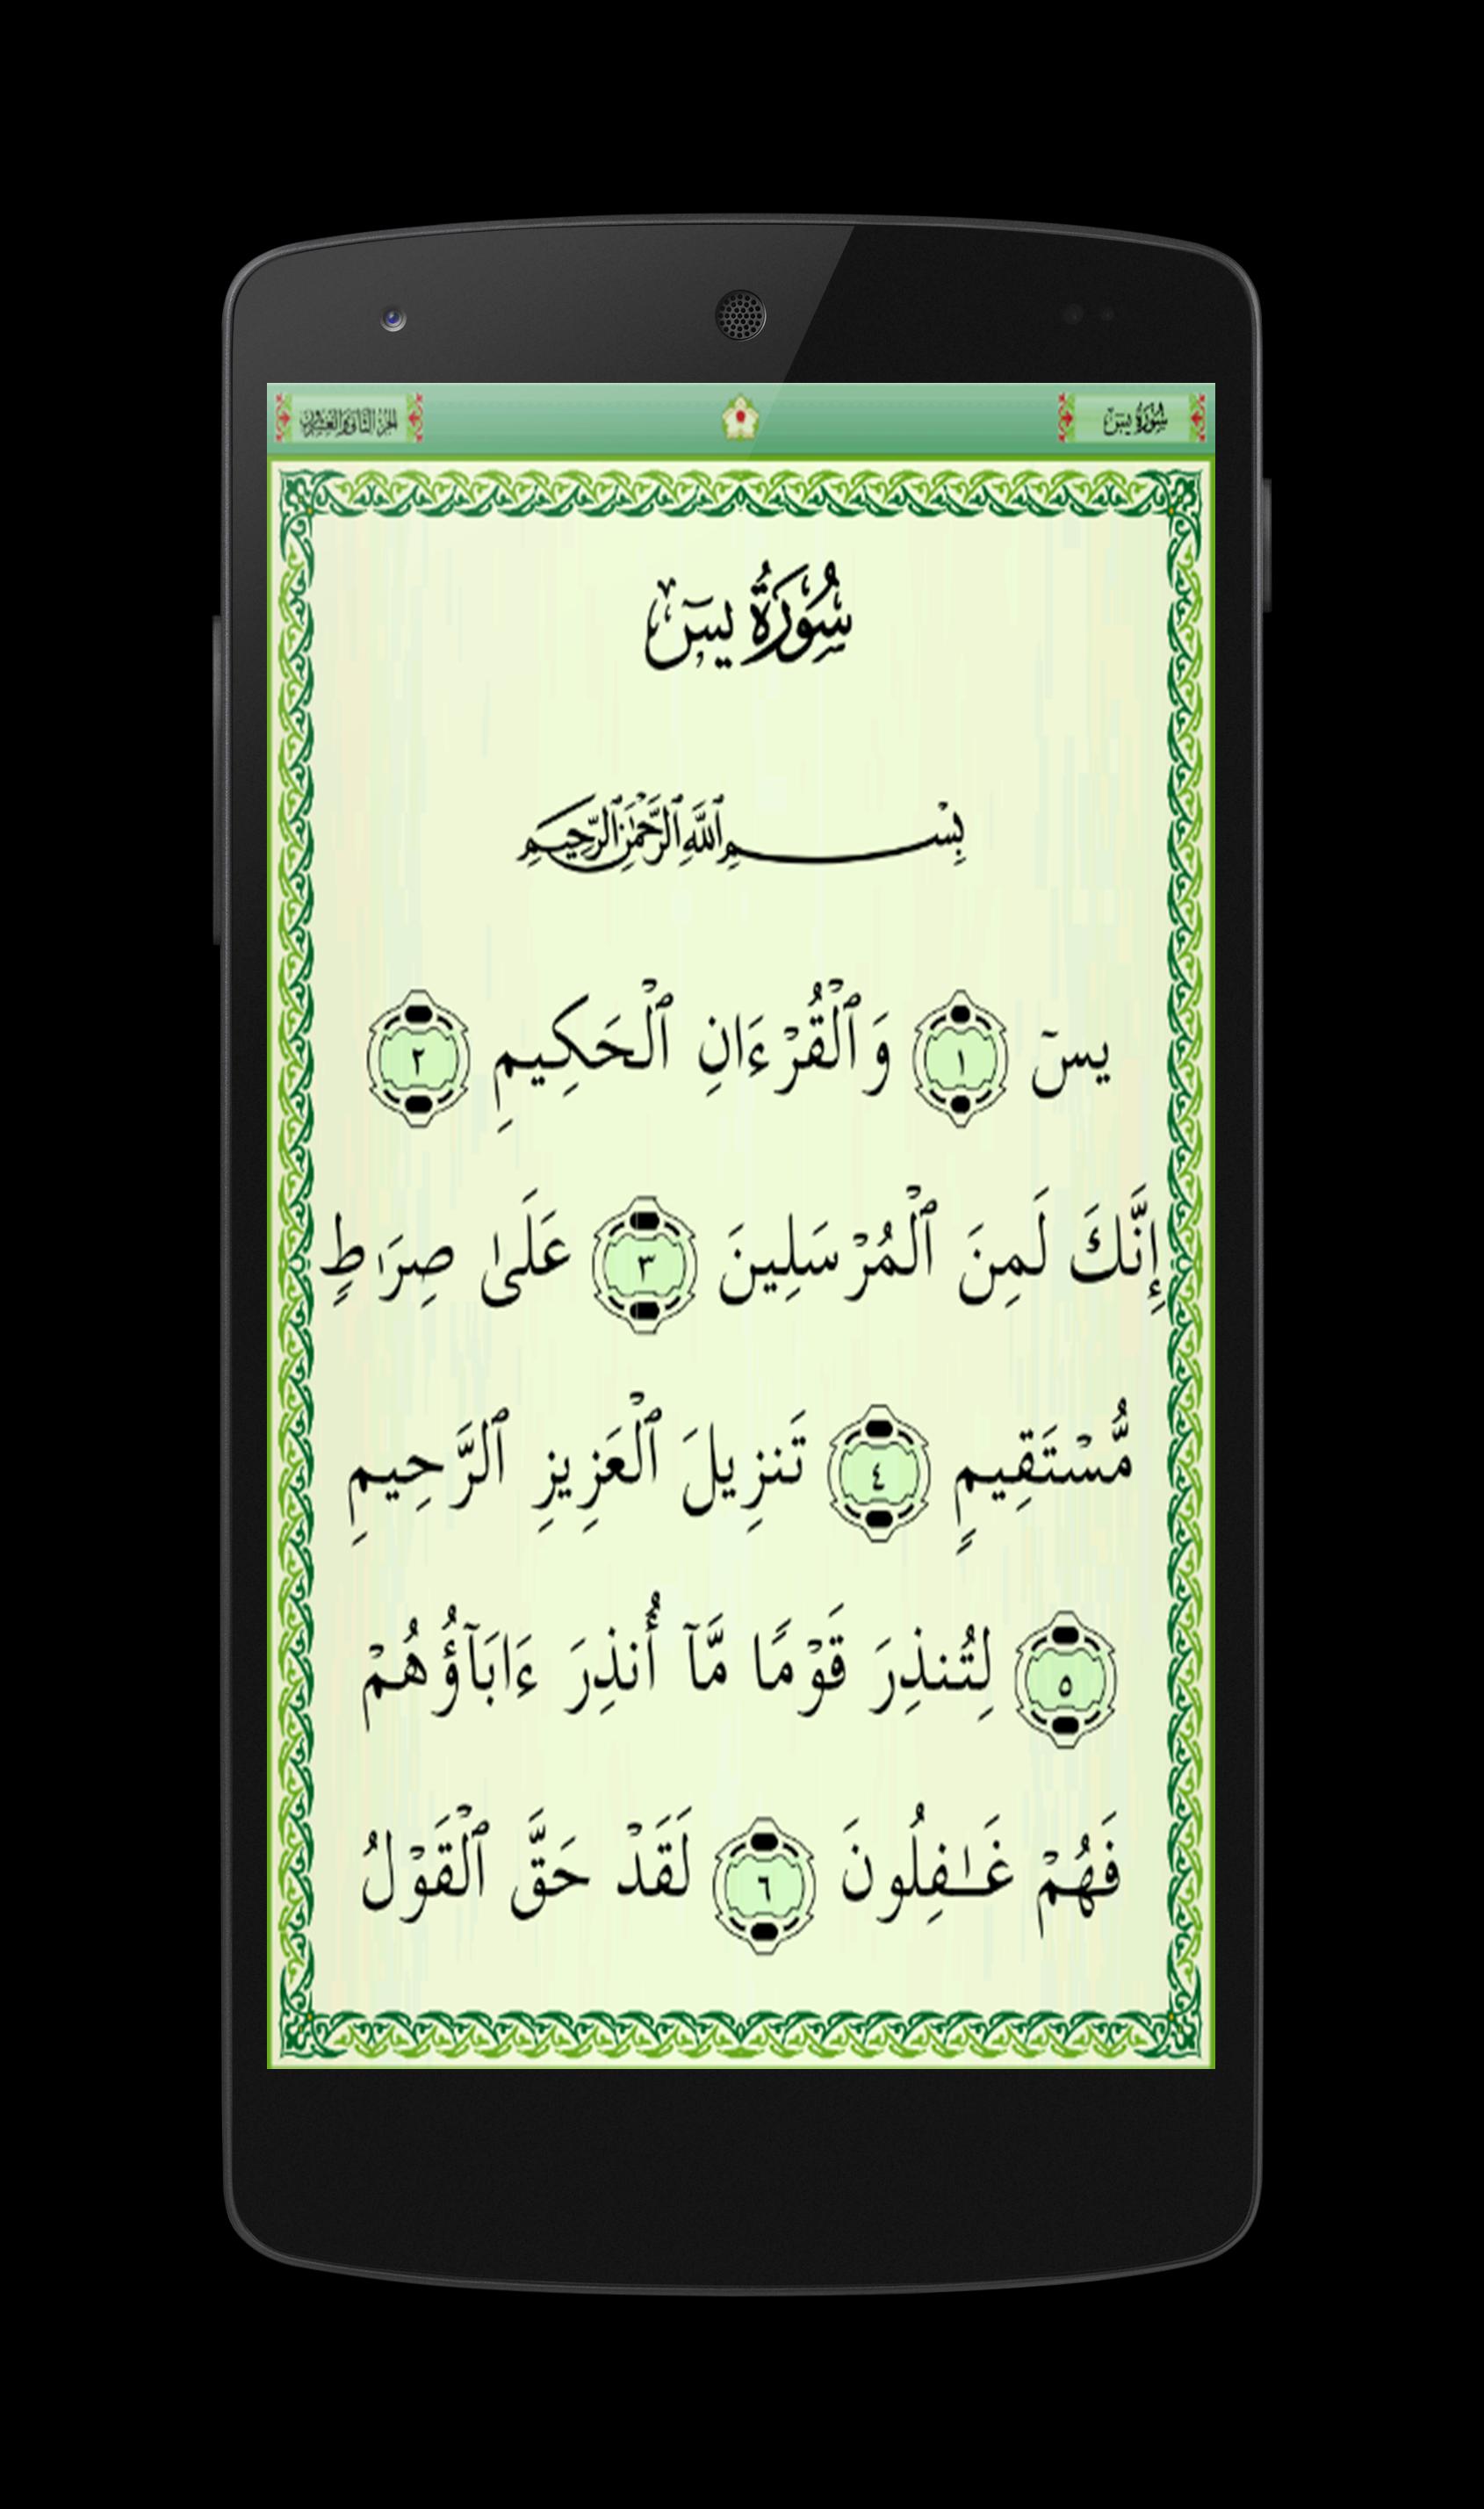 سُورَةُ يسٓ
الجزء الثاني والعشرون
سُورَةُ يسٓ
بِسْمِ ٱللَّهِ ٱلرَّحْمَٰنِ ٱلرَّحِيمِ
يسٓ ١ وَٱلْقُرْءَانِ ٱلْحَكِيمِ ٢
إِنَّكَ لَمِنَ ٱلْمُرْسَلِينَ ٣ عَلَىٰ صِرَٰطٍ
مُّسْتَقِيمٍ ٤ تَنزِيلَ ٱلْعَزِيزِ ٱلرَّحِيمِ
٥ لِتُنذِرَ قَوْمًا مَّآ أُنذِرَ ءَابَآؤُهُمْ
فَهُمْ غَـٰفِلُونَ ٦ لَقَدْ حَقَّ ٱلْقَوْلُ